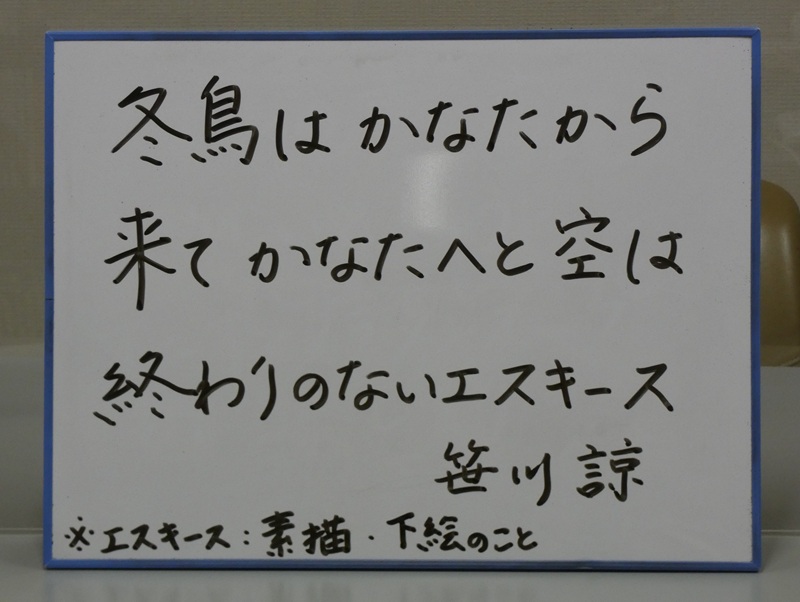 冬鳥はかなたから
来てかなたへと空は
終わりのないエスキース
笹川諒
※エスキース：素描・下絵のこと